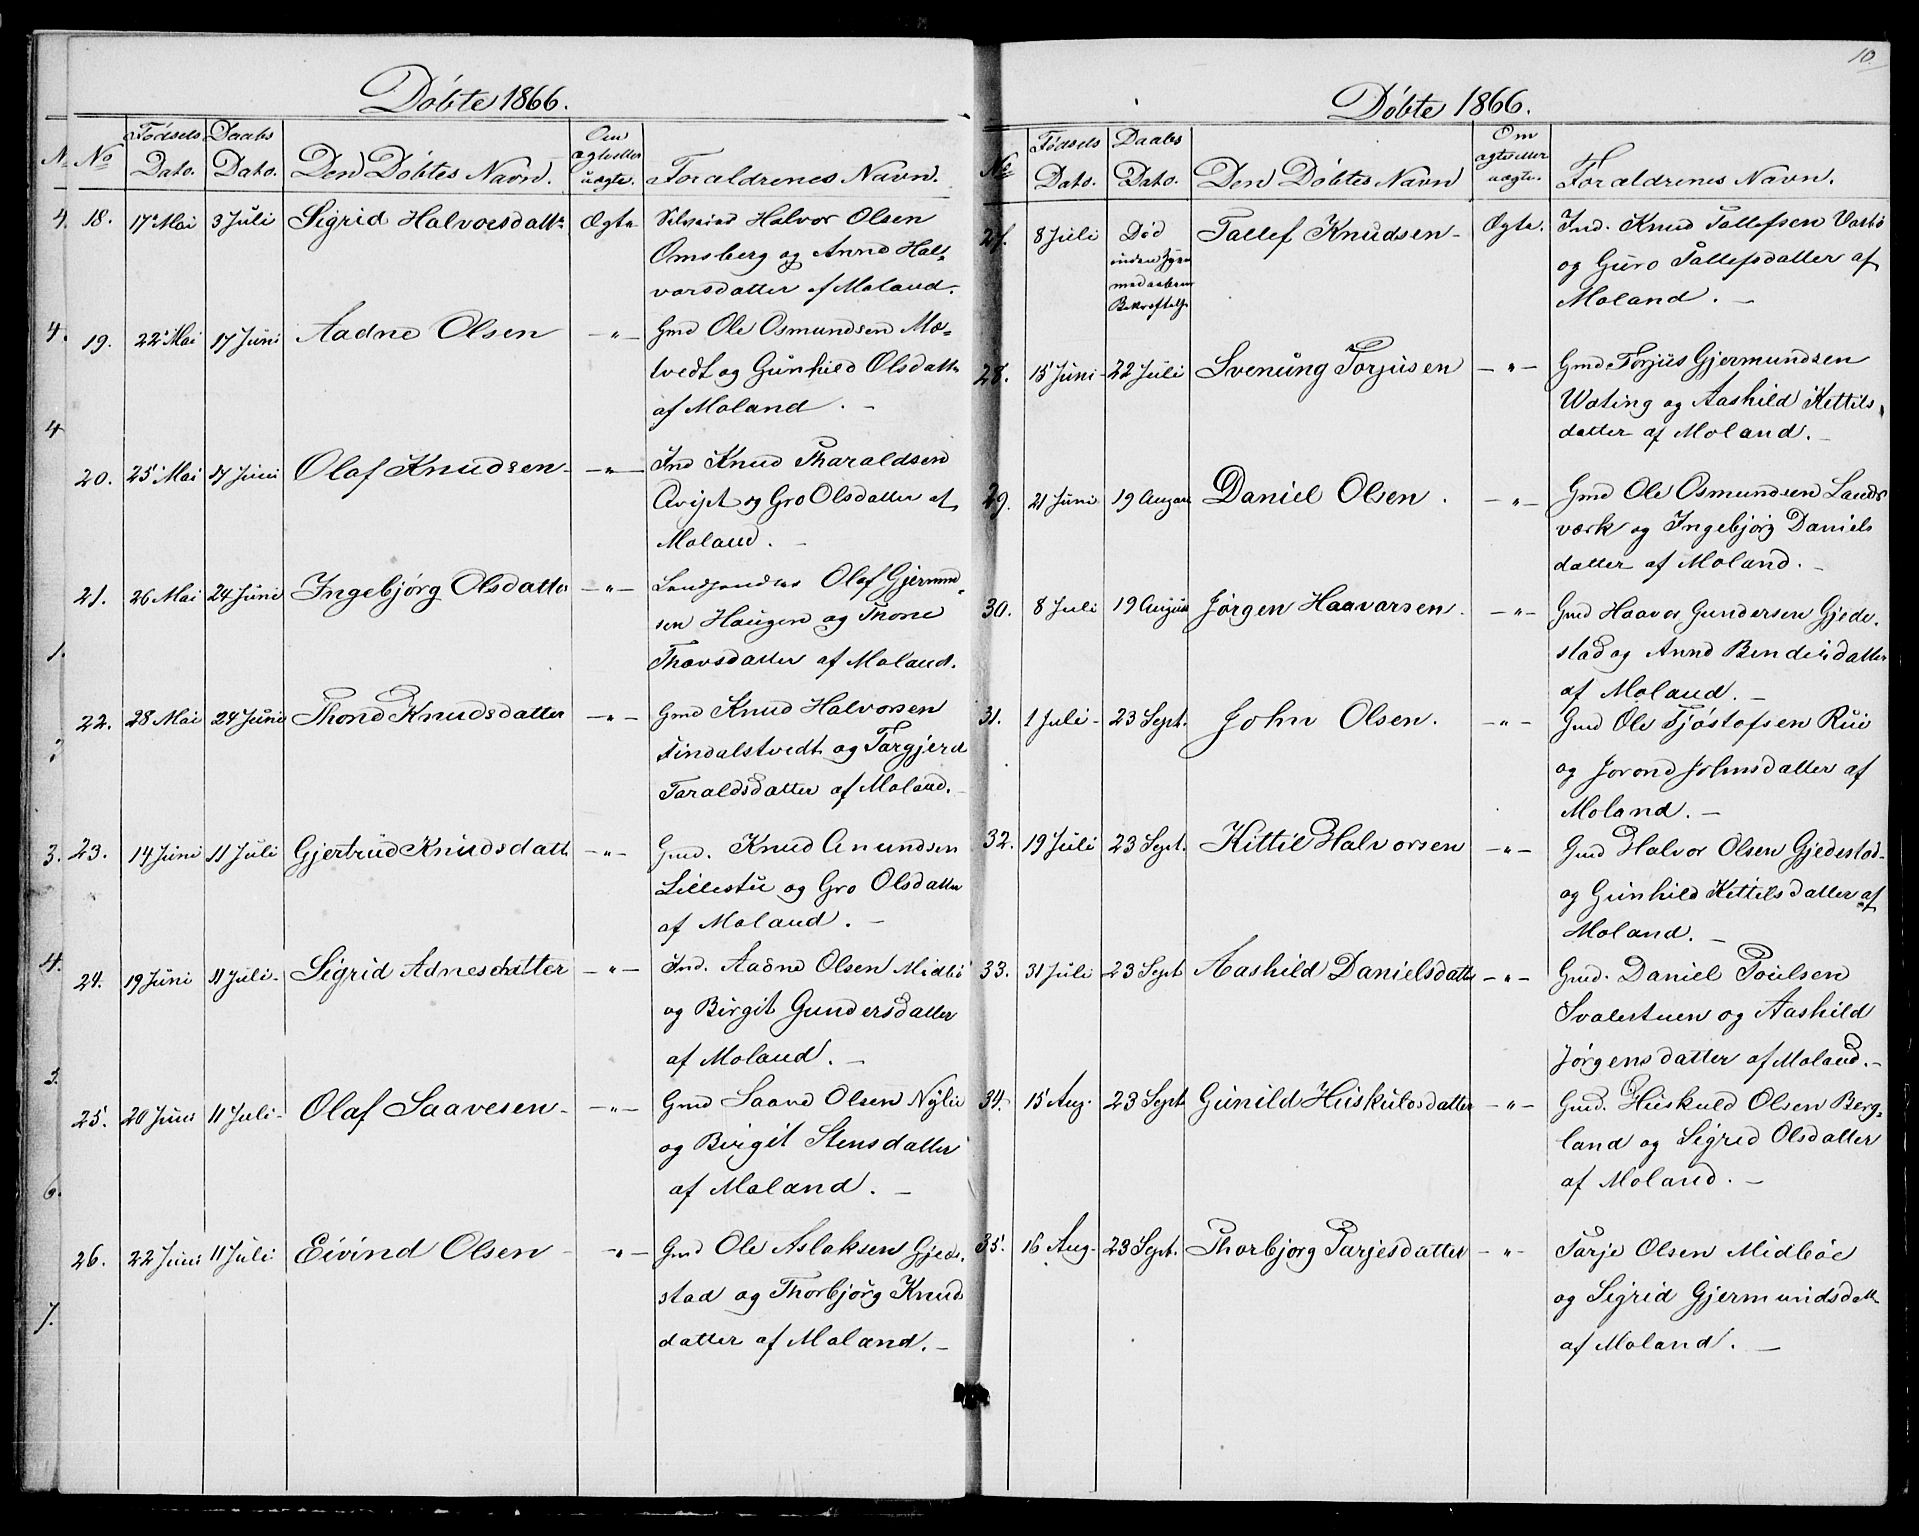 Döbte 1866.
No Fødsels Dato. Daabs Dato. Den Döbtes Navn. Om ægte eller uægte. Forældrenes Navn.
18. 17de Mai 3 Juli Sigrid Halvorsdattr Ægte Halvor Olsen
Omsberg og Anne Hal-
vorsdatter af Moland.
19. 22de Mai 17 Juni Aadne Olsen -"- Gmd Ole Osmundsen Mæ-
tvedt og Gunhild Olsdattr
af Moland. -
20. 25 Mai 17 Juni Olaf Knudsen -"- Ind Knud Tharaldsen
og Gro Olsdatter af
Moland. -
21. 26 Mai 24 Juni Ingebjørg Olsdatter -"- Landhandler Olaf Gjermund-
sen Haugen og Thone
Thovsdatter af Moland.
22. 28 Mai 24 Juni Thone Knudsdatter -"- Gmd Knud Halvorsen
Findalstvedt og Torgjerd
Taraldsdatter af Moland. -
23. 14 Juni 11 Juli Gjertrud Knudsdatt -"- Gmd. Knud Anundsen
Lillestu og Gro Olsdatter
af Moland. -
24. 19 Juni 11 Juli - Sigrid Adnesdatter -"- Ind. Aadne Olsen Midbö
og Birgit Gundersdatter
af Moland. -
25. 20 Juni 11 Juli - Olaf Saavesen -"- Gmd Saave Olsen Nylie
og Birgit Stensdatter
af Moland. -
26. 22 Juni 11 Juli Eivind Olsen -"- Gmd Ole Aslaksen Gjede-
stad og Thorbjörg Knuds
datter af Moland. -
10
Döbte 1866.
No Fødsels Dato. Daabs Dato. Den Döbtes Navn Om ægte eller uægte. Forældrenes Navn.
27. 8 Juli Död Tallef Knudsen - Ægte. Ind. Knud Tallefsen Vasbö
og Guro Tallefsdatter af
Moland. -
28. 15 Juni 22 Juli Svenung Torjusen -"- Gmd Torjus Gjermundsen
Woting og Aashild Kettils-
datter af Moland. -
29. 21 Juni 19 August Daniel Olsen. -"- Gmd Ole Osmundsen Lands
værk og Ingebjörg Daniels
datter af Moland. -
30. 8 Juli 19 August Jörgen Haavorsen. -"- Gmd Haavor Gundersen Gjede-
stad og Anne Bendixdatter
af Moland. -
31. 1 Juli - 23 Sept. John Olsen. -"- Gmd Ole Tjöstofsen Rui
og Jorond Johnsdatter af
Moland. -
32. 19 Juli 23 Sept. Kittil Halvorsen -"- Gmd Halvor Olsen Gjedestad-
og Gunhild Kittilsdatter af
Moland. -
33. 31 Juli 23 Sept Aashild Danielsdatter -"- Gmd. Daniel Poulsen
Svalestuen og Aashild
Jörgensdatter af Moland. -
34. 15 Aug. 23 Sept Gunild Huskulosdatter -"- Gmd. Huskuld Olsen Berg-
land og Sigrid Olsdatter
af Moland. -
35. 16 Aug. 23 Sept. Thorbjörg Tarjesdatter -"- Tarje Olsen Midböe
og Sigrid Gjermundsdattr
af Moland. -